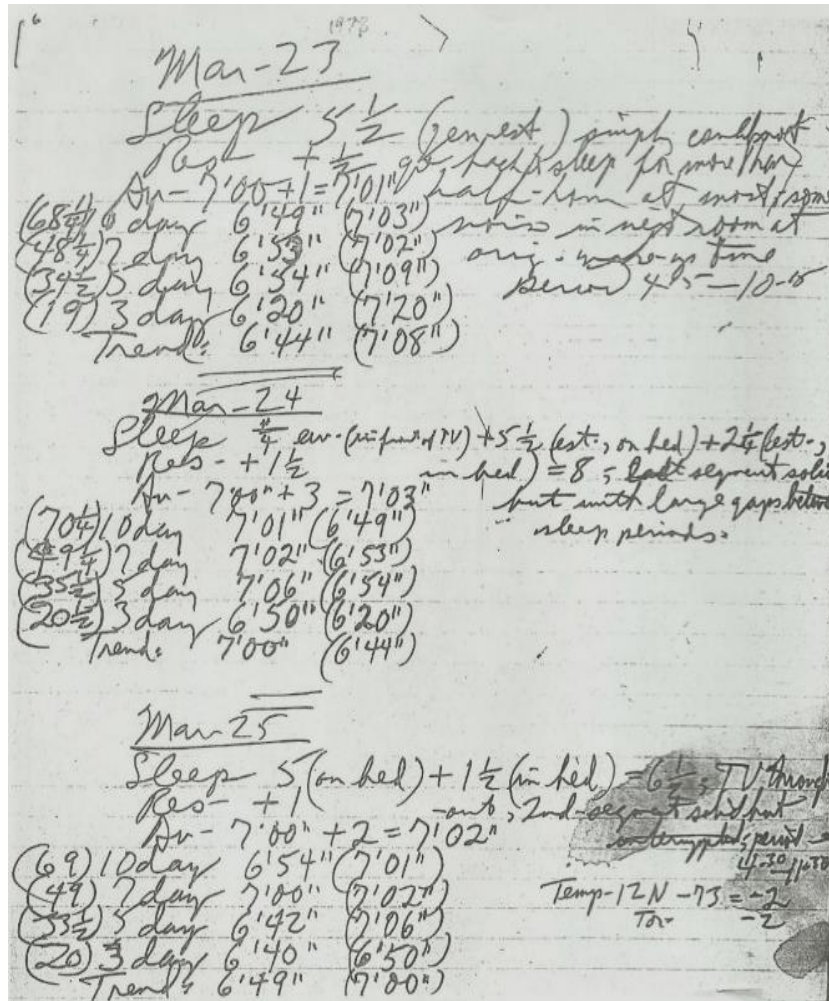 1978
Mar-23
Sleep 5 1/2 (earnest) simply couldn't
Res- + 1/2 go back to sleep for more than
Av- 7'00+1=7'01" half-hour at most, some
(68 1/4) 10 day 6'49" (7'03") noise in next room at
(48 1/4) 7 day 6'53" (7'02") orig. wake-up time
(34 1/2) 5 day 6'54" (7'09") period 4-15—10-15
(19) 3 day 6'20" (7'20")
Trend: 6'44" (7'08")
Mar-24
Sleep eve-(in front of TV) + 5 1/2 (est-, on bed) + 2 1/4 (est-,
Res- + 1 1/2 in bed) = 8; last segment solid
Av- 7'00" + 3 = 7'03" but with large gaps between
(70 1/4) 10 day 7'01" (6'49") sleep periods.
(49 1/4) 7 day 7'02" (6'53")
(35 1/2) 5 day 7'06" (6'54")
(20 1/2) 3 day 6'50" (6'20")
Trend: 7'00" (6'44")
Mar-25
Sleep 5 (on bed) + 1 1/2 (in bed) = 6 1/2; TV through
Res- + 1 -out, 2nd-segment solid but
Av- 7'00" + 2 = 7'02" interrupted; period
(69) 10 day 6'54" (7'01")
(49) 7 day 7'00" (7'02")
(33 1/2) 5 day 6'42" (7'06") Temp-12N -73 = -2
(20) 3 day 6'40" (6'50") Tor- -2
Trend: 6'49" (7'00")